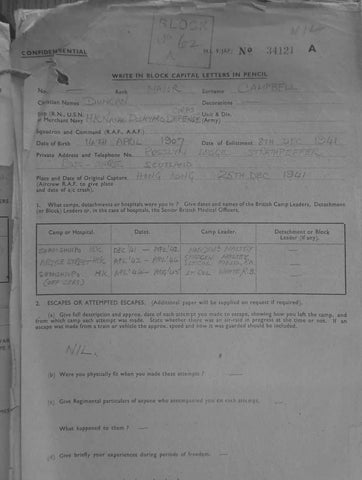 BLOCK
No 182
A
NIL
CONFIDENTIAL
M.I. 9/JAP/ No 34121 A
WRITE IN BLOCK CAPITAL LETTERS IN PENCIL
No. — Rank MAJOR Surname CAMPBELL
Christian Names DUNCAN Decorations —
Ship (R.N., U.S.N. or Merchant Navy) H.K. NAVAL DOCKYARD DEFENSE CORPS Unit & Div. (Army)
Squadron and Command (R.A.F., A.A.F.)
Date of Birth 14TH APRIL 1907 Date of Enlistment 8TH DEC 1941
Private Address and Telephone No. ROSSLYN LODGE STRATHPEFFER
SCOTLAND
Place and Date of Original Capture HONG KONG 25TH DEC 1941
(Aircrew R.A.F. to give place
and date of a/c crash).
1. What camps, detachments or hospitals were you in ? Give dates and names of the British Camp Leaders, Detachment
(or Block) Leaders or, in the case of hospitals, the Senior British Medical Officers.
Camp or Hospital. Dates. Camp Leader. Detachment or Block
Leader (if any).
SHAMSHUIPO H.K. DEC '41 — APL '42 MALTBY —
ARGYLE STREET H.K. APL '42 — APL '44 —
SHAMSHUIPO H.K. APL '44 — AUG '45 LT COL WHITE, R.S. —
(OFF. CAMP)
2. ESCAPES OR ATTEMPTED ESCAPES. (Additional paper will be supplied on request if required).
(a) Give full description and approx. date of each attempt you made to escape, showing how you left the camp, and
from which camp each attempt was made. State whether there was an air-raid in progress at the time or not. If an
escape was made from a train or vehicle the approx. speed and how it was guarded should be included.
NIL.
(b) Were you physically fit when you made these attempts ? —
(c) Give Regimental particulars of anyone who accompanied you on each attempt. —
What happened to them ? —
(d) Give briefly your experiences during periods of freedom. —